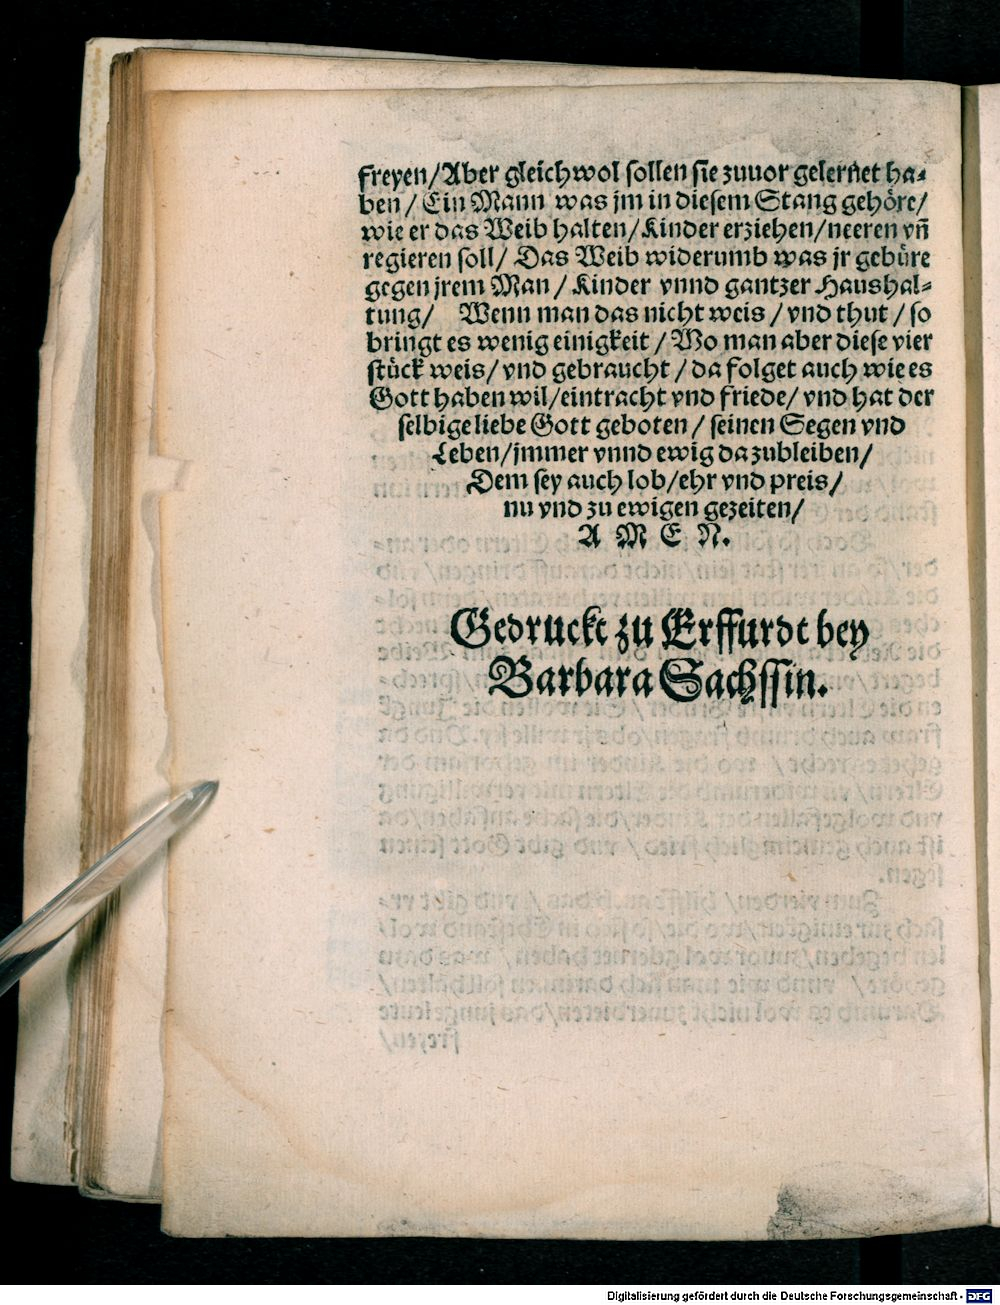 freyen/Aber gleichwol sollen sie zuuor gelernet ha⸗
ben / Ein Mann was jm in diesem Stang gehöre/
wie er das Weib halten/Kinder erziehen/neeren vñ
regieren soll/ Das Weib widerumb was jr gebüre
gegen jrem Man / Kinder vnnd gantzer Haushal⸗
tung/ Wenn man das nicht weis / vnd thut / so
bringt es wenig einigkeit / Wo man aber diese vier
stück weis/ vnd gebraucht / da folget auch wie es
Gott haben wil/eintracht vnd friede/ vnd hat der
selbige liebe Gott geboten / seinen Segen vnd
Leben/jmmer vnnd ewig da zubleiben/
Dem sey auch lob/ehr vnd preis/
nu vnd zu ewigen gezeiten/
A M E N.
Gedruckt zu Erffurdt bey
Barbara Sachssin.
Digitalisierung gefördert durch die Deutsche Forschungsgemeinschaft - DFG